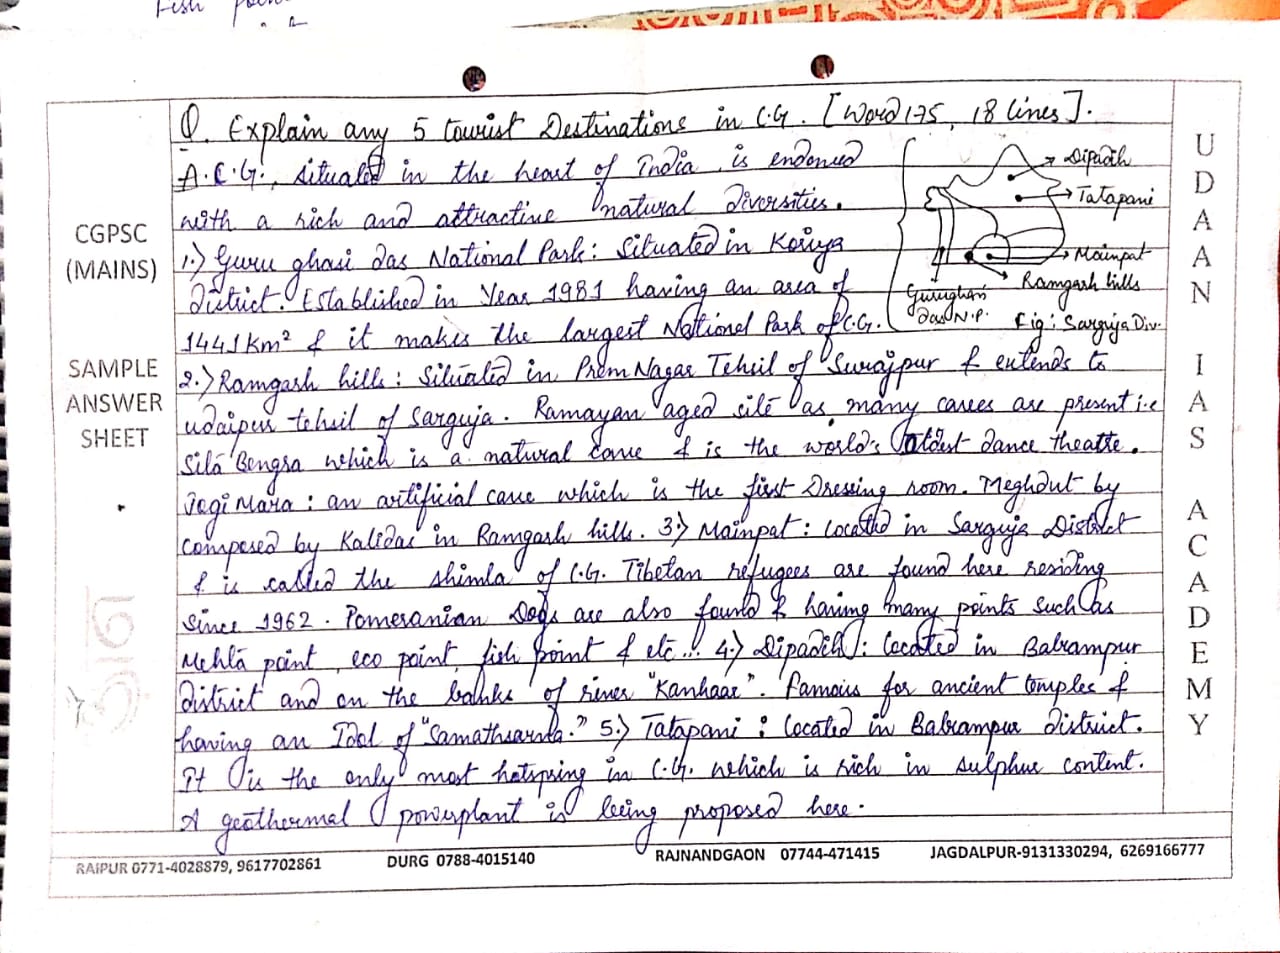 Fish
CGPSC
(MAINS)
SAMPLE
ANSWER
SHEET
Q. Explain any 5 tourist Destinations in C.G. [Word 175, 18 lines].
A. C.G., situated in the heart of India, is endowed
with a rich and attractive natural diversities.
1.) Guru ghasi das National Park: Situated in Koriya
district. Established in Year 1981 having an area of
1441 Km² & it makes the largest National Park of C.G.
Dipadih
Tatapani
Mainpat
Ramgarh hills
Gurughasi
das N.P.
Fig: Sarguja Div.
2.) Ramgarh hills: Situated in Prem Nagar Tehsil of Surajpur & extends to
udaipur tehsil of Sarguja. Ramayan aged site as many caves are present i.e
Sita Bengra which is a natural cave & is the world's oldest dance theatre.
Jogi Mara: an artificial cave which is the first Dressing room. Meghdut by
composed by Kalidas in Ramgarh hills. 3.) Mainpat: Located in Sarguja District
& is called the Shimla of C.G. Tibetan refugees are found here residing
since 1962. Pomeranian Dogs are also found & having many points such as
Mehta point, eco point, fish point & etc... 4.) Dipadih: Located in Balrampur
district and on the banks of river "Kanhaar". Famous for ancient temples &
having an Idol of "Samathsarna." 5.) Tatapani: Located in Balrampur district.
It is the only most hotspring in C.G. which is rich in sulphur content.
A geothermal powerplant is being proposed here.
UDAAN IAS ACADEMY
RAIPUR 0771-4028879, 9617702861 DURG 0788-4015140 RAJNANDGAON 07744-471415 JAGDALPUR-9131330294, 6269166777